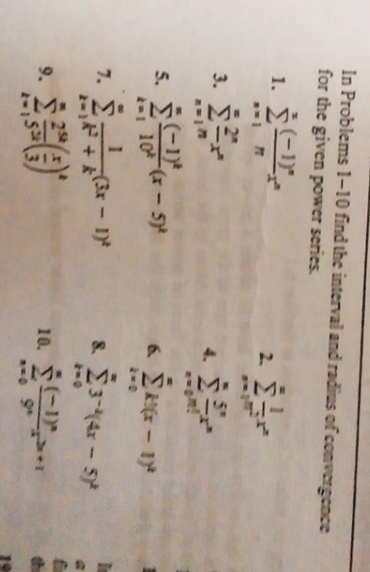 In Problems 1–10 find the interval and radius of convergence
for the given power series.
1. ∑_{n=1}^{∞} (−1)ⁿ/n xⁿ
2. ∑_{n=1}^{∞} 1/n² xⁿ
3. ∑_{n=1}^{∞} 2ⁿ/n xⁿ
4. ∑_{n=0}^{∞} 5ⁿ/n! xⁿ
5. ∑_{k=1}^{∞} (−1)ᵏ/10ᵏ (x − 5)ᵏ
6. ∑_{k=0}^{∞} k!(x − 1)ᵏ
7. ∑_{k=1}^{∞} 1/(k² + k) (3x − 1)ᵏ
8. ∑_{k=0}^{∞} 3⁻ᵏ(4x − 5)ᵏ
9. ∑_{k=1}^{∞} 2⁵ᵏ/5²ᵏ (x/3)ᵏ
10. ∑_{n=0}^{∞} (−1)ⁿ/9ⁿ x²ⁿ⁺¹